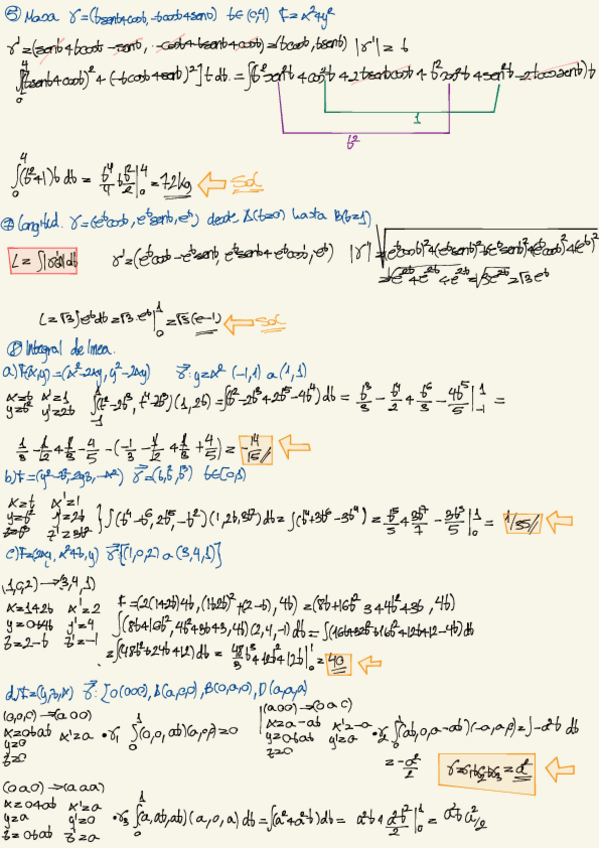 ⑤ Masa r=(tsent+cost, -tcost+sent) t∈(0,4) f=x²+y²
r'=(sent+tcost-sent, -cost+tsent+cost)=(tcost, tsent) |r'|=t
∫₀⁴[(tsent+cost)²+(-tcost+sent)²]t dt=∫(t²sen²t+cos²t+2tsentcost+t²cos²t+sen²t-2tcostsent)t
1
t²
∫₀⁴(t²+1)t dt = t⁴/4 + t²/2 |₀⁴ = 72kg ⇐ Sol
⑦ Longitud. r=(eᵗcost, eᵗsent, eᵗ) desde A(t=0) hasta B(t=1)
L=∫|r'(t)|dt r'=(eᵗcost-eᵗsent, eᵗsent+eᵗcost, eᵗ) |r'|=√(eᵗcost)²+(eᵗsent)²+(eᵗsent)²+(eᵗcost)²+(eᵗ)²
=√e²ᵗ+e²ᵗ+e²ᵗ=√3e²ᵗ=√3eᵗ
L=√3∫eᵗdt=√3·eᵗ|₀¹=√3(e-1) ⇐ Sol
⑧ Integral de linea.
a) F(x,y)=(x²-2xy, y²-2xy) r: y=x² (-1,1) a (1,1)
x=t x'=1
y=t² y'=2t ∫₋₁¹(t²-2t³, t⁴-2t³)(1,2t)=∫(t²-2t³+2t⁵-4t⁴)dt = t³/3 - t⁴/2 + t⁶/3 - 4t⁵/5 |₋₁¹ =
= -14/15 ⇐
b) F=(y²-z², 2yz, -x²) r=(t,t²,t³) t∈[0,1]
x=t x'=1
y=t² y'=2t } ∫(t⁴-t⁶, 2t⁵, -t²)(1,2t,3t²)dt=∫(t⁴+3t⁶-3t⁴) = t⁵/5 + 3t⁷/7 - 3t⁵/5 |₀¹ = 1/35 ⇐
z=t³ z'=3t²
c) F=(2xy, x²+z, y) r:[(1,0,2) a (3,4,1)]
(1,0,2)→(3,4,1)
x=1+2t x'=2 F=(2(1+2t)4t, (1+2t)²+(2-t), 4t)=(8t+16t², 3+4t²+3t, 4t)
y=0+4t y'=4 ∫(8t+16t², 4t²+3t+3, 4t)(2,4,-1)dt=∫(16t+32t²+16t²+12t+12-4t)dt
z=2-t z'=-1 =∫(48t²+24t+12)dt = 48/3 t³+12t²+12t|₀¹=40 ⇐
d) F=(y,z,x) r: [O(000), A(a,0,0), B(0,a,0), D(a,a,a)
(0,0,0)→(a00) (a00)→(0a0)
x=0+at x'=a x=a-at x'=-a
y=0 ·r₁ ∫₀¹(0,0,at)(a,0,0)=0 y=0+at y'=a ·r₂ ∫₀¹(at,0,a-at)(-a,a,0)=∫-a²t dt
z=0 z=0 = -a²/2 r=r₁+r₂+r₃=a² ⇐
(0a0)→(aaa)
x=0+at x'=a
y=a y'=0 ·r₃ ∫₀¹(a,at,at)(a,0,a)dt=∫(a²+a²t)dt= a²t+ a²t²/2 |₀¹=
z=0+at z'=a